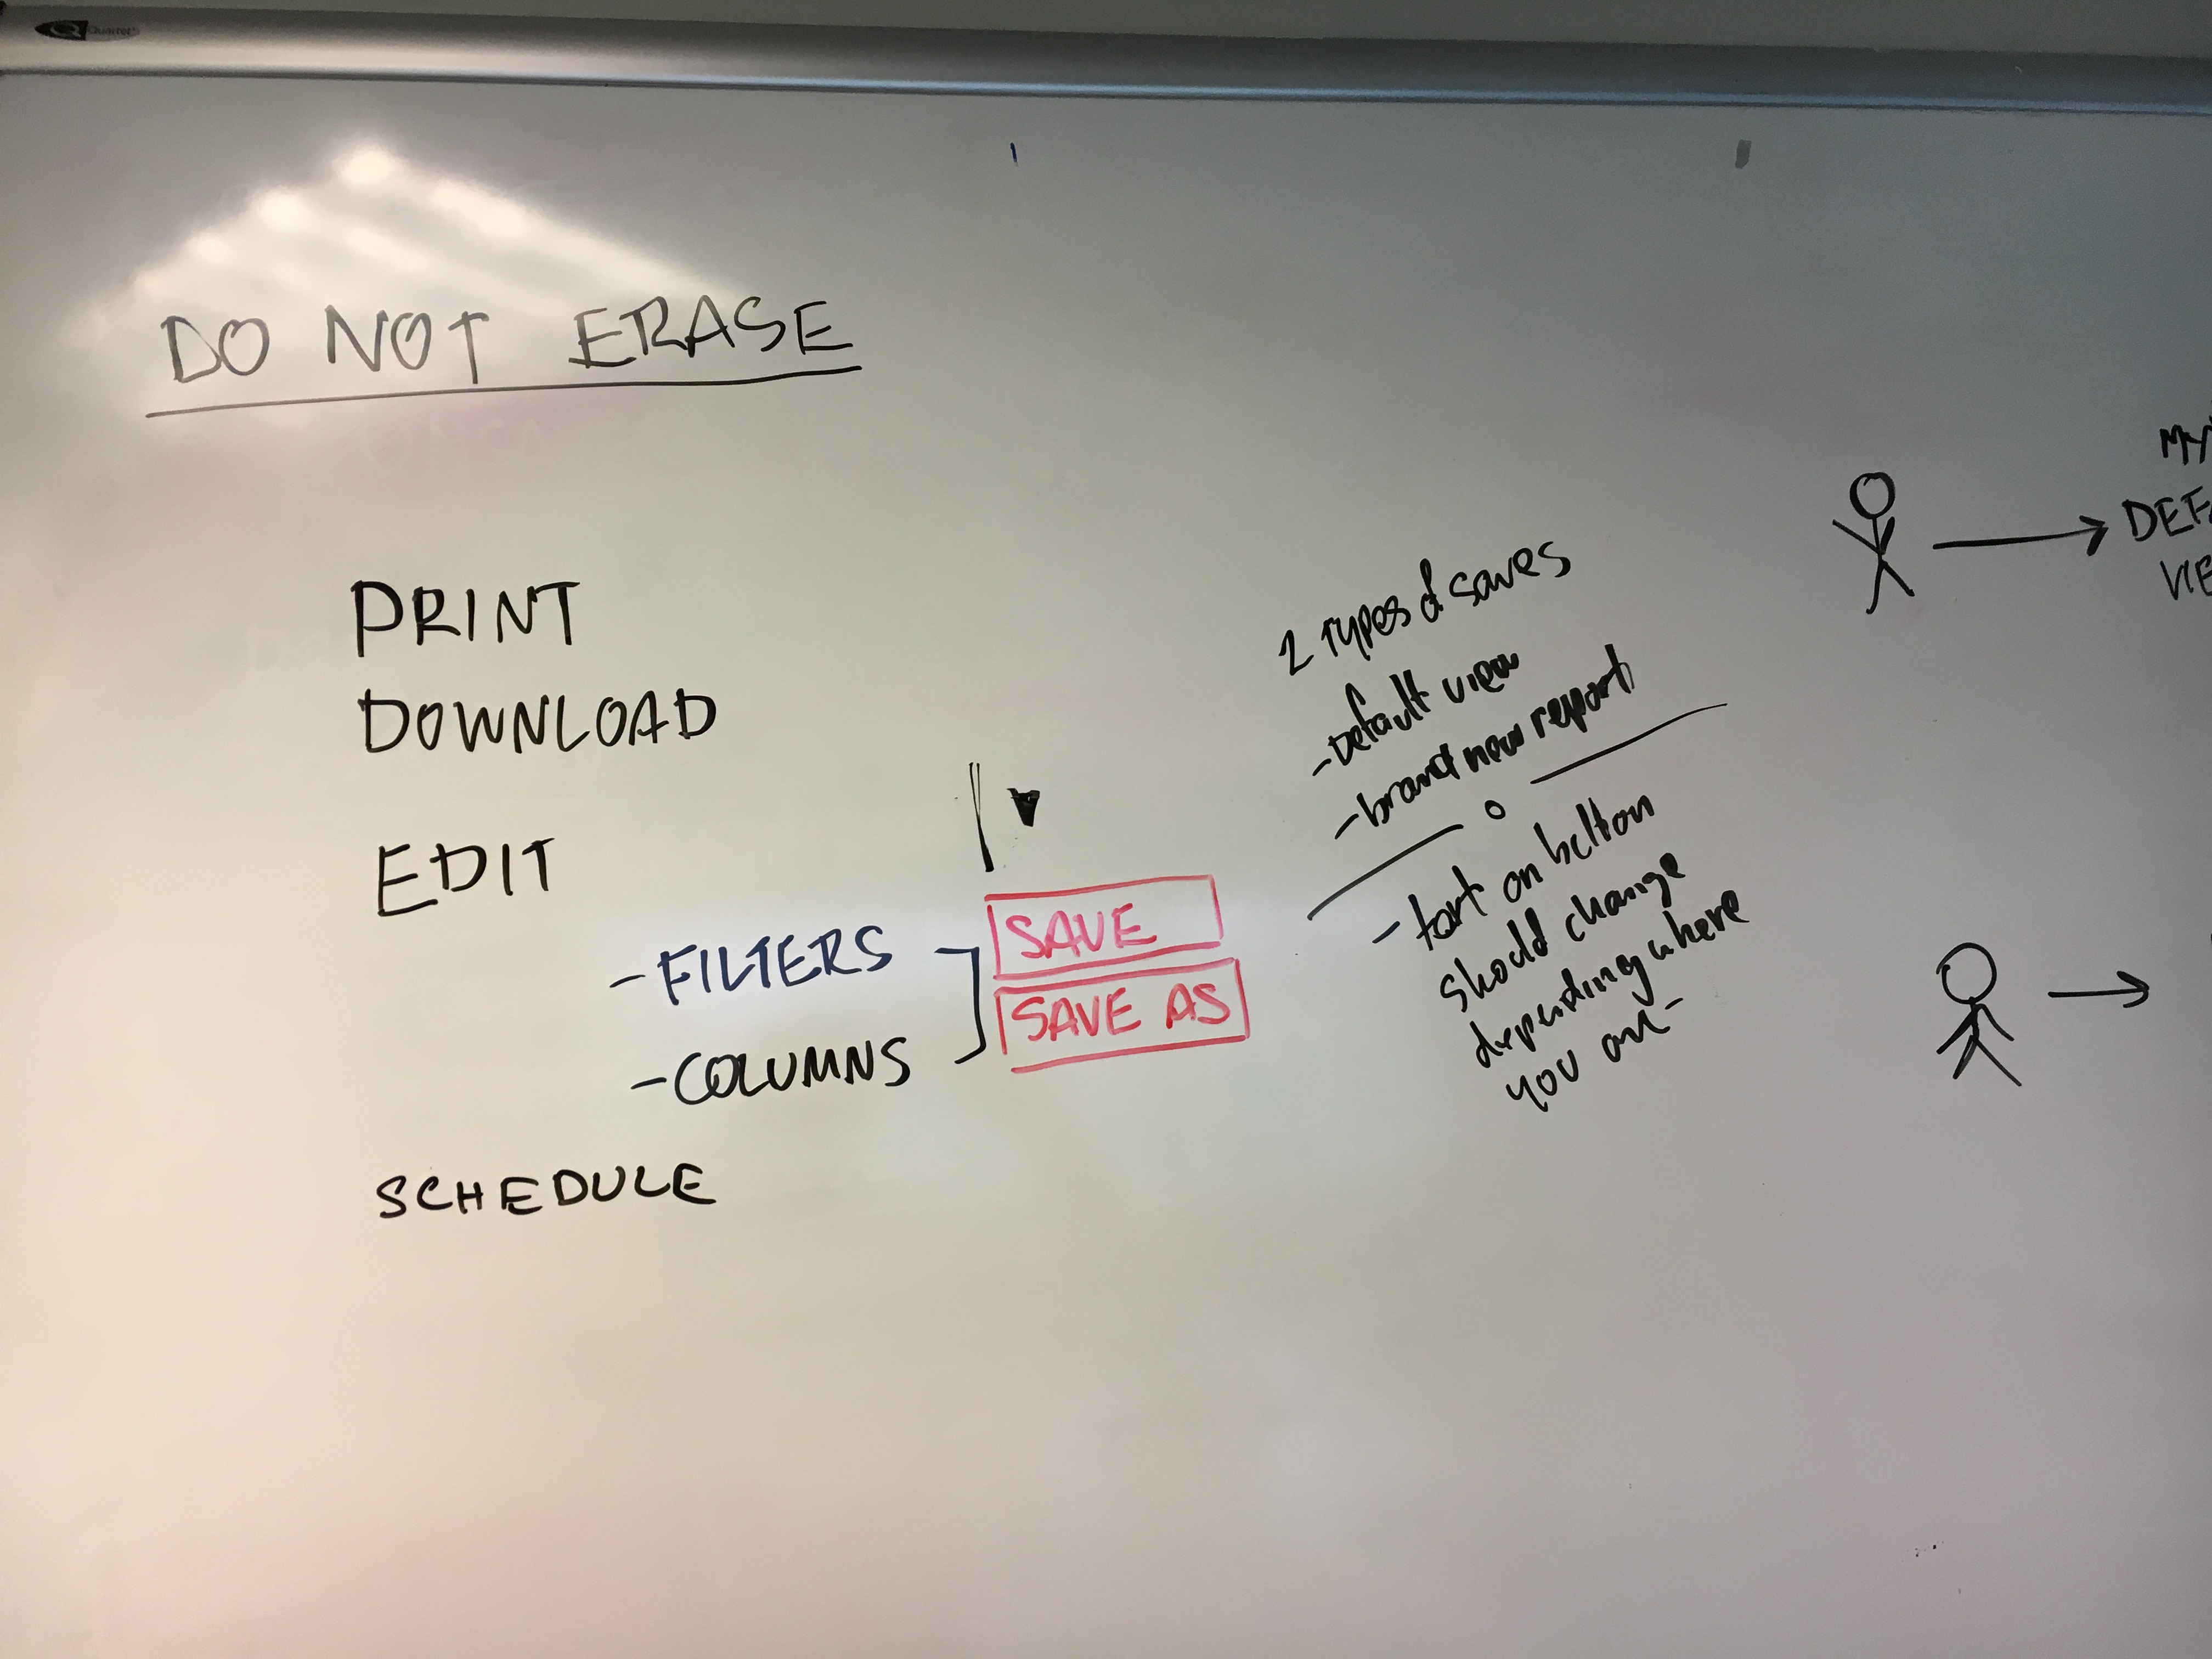 Quartet
DO NOT ERASE
PRINT
DOWNLOAD
EDIT
-FILTERS
-COLUMNS
SAVE
SAVE AS
SCHEDULE
2 Types of saves
-Default view
-brand new report
- text on button
should change
depending where
you are-
MY
DEFA
VIE